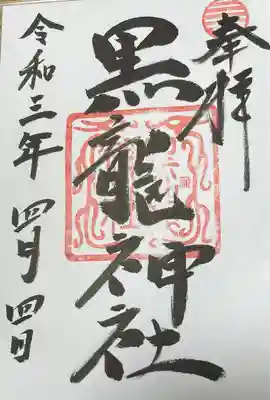 奉拝
黒龍神社
令和三年 四月 四日